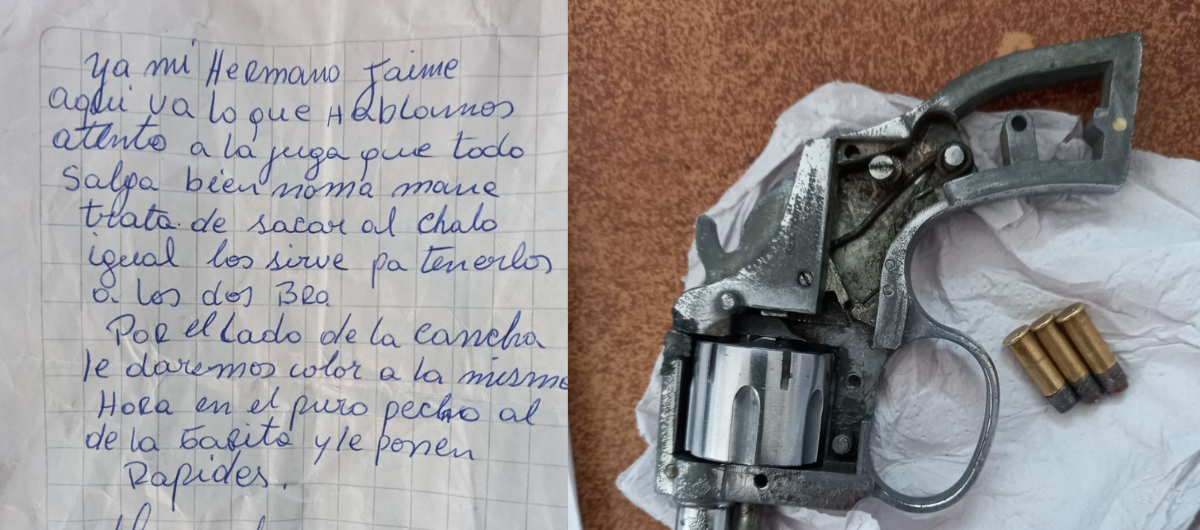 Ya mi Hermano Jaime
aqui va lo que Hablamos
atento a la juga que todo
Salga bien noma mane
trata de sacar al chalo
igual los sirve pa tenerlos
a los dos Bro
Por el lado de la cancha
le daremos color a la misma
Hora en el puro pecho al
de la Garita y le ponen
Rapides.